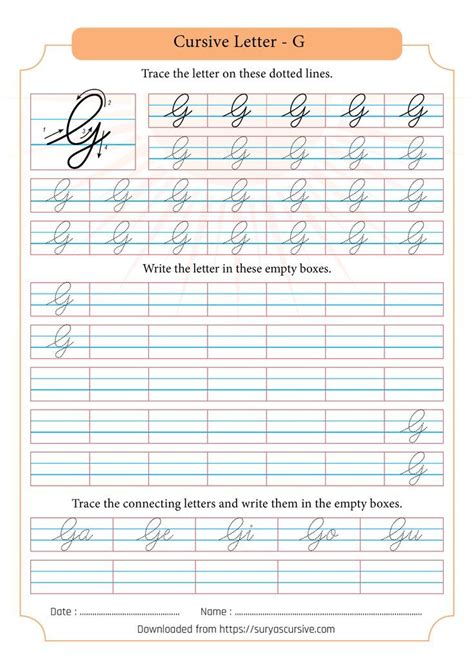 Cursive Letter - G
Trace the letter on these dotted lines.
1 2 3 4 G G G G G G
G G G G G
G G G G G G G
G G G G G G G
Write the letter in these empty boxes.
G
G
G
G
Trace the connecting letters and write them in the empty boxes.
Ga Ge Gi Go Gu
Date : ........................................ Name : ............................................................
Downloaded from https://suryascursive.com